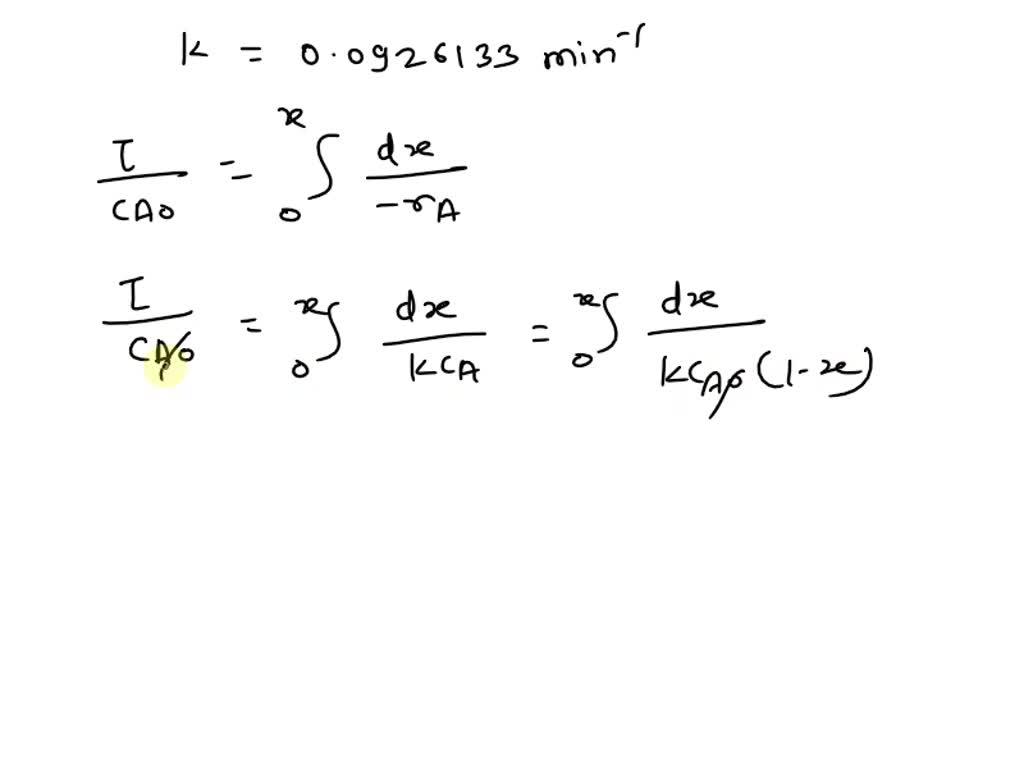 k = 0.0926133 min⁻¹
τ/CA0 = ∫₀ˣ dx/-rA
τ/CA0 = ∫₀ˣ dx/kCA = ∫₀ˣ dx/kCA0(1-x)